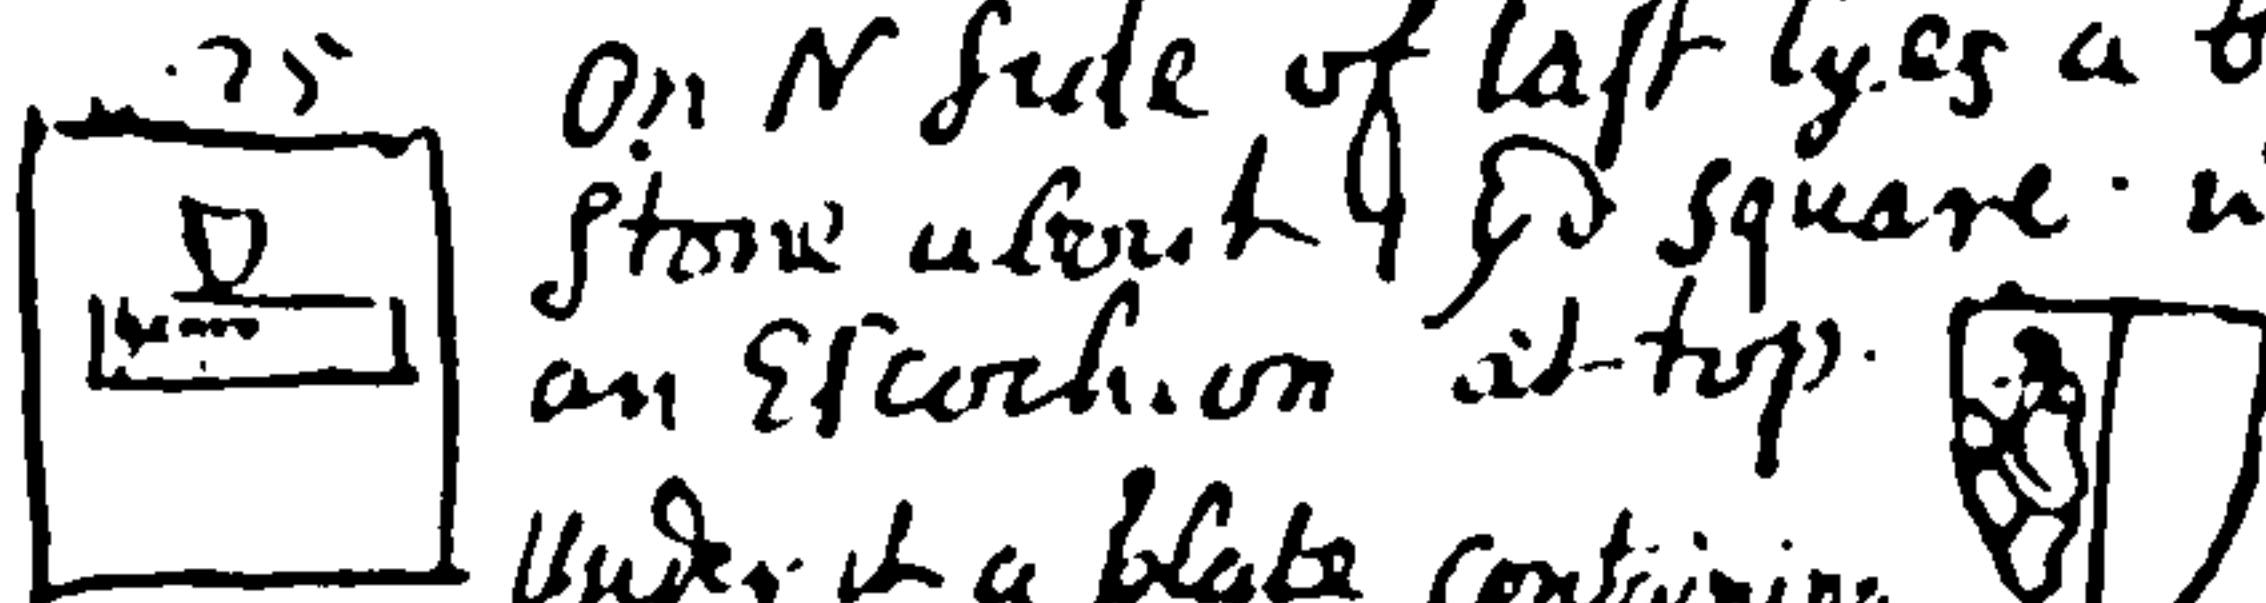 75
On N Side of last lyes a
Stone about yd square
an Escochion at top.
Under it a plate containing